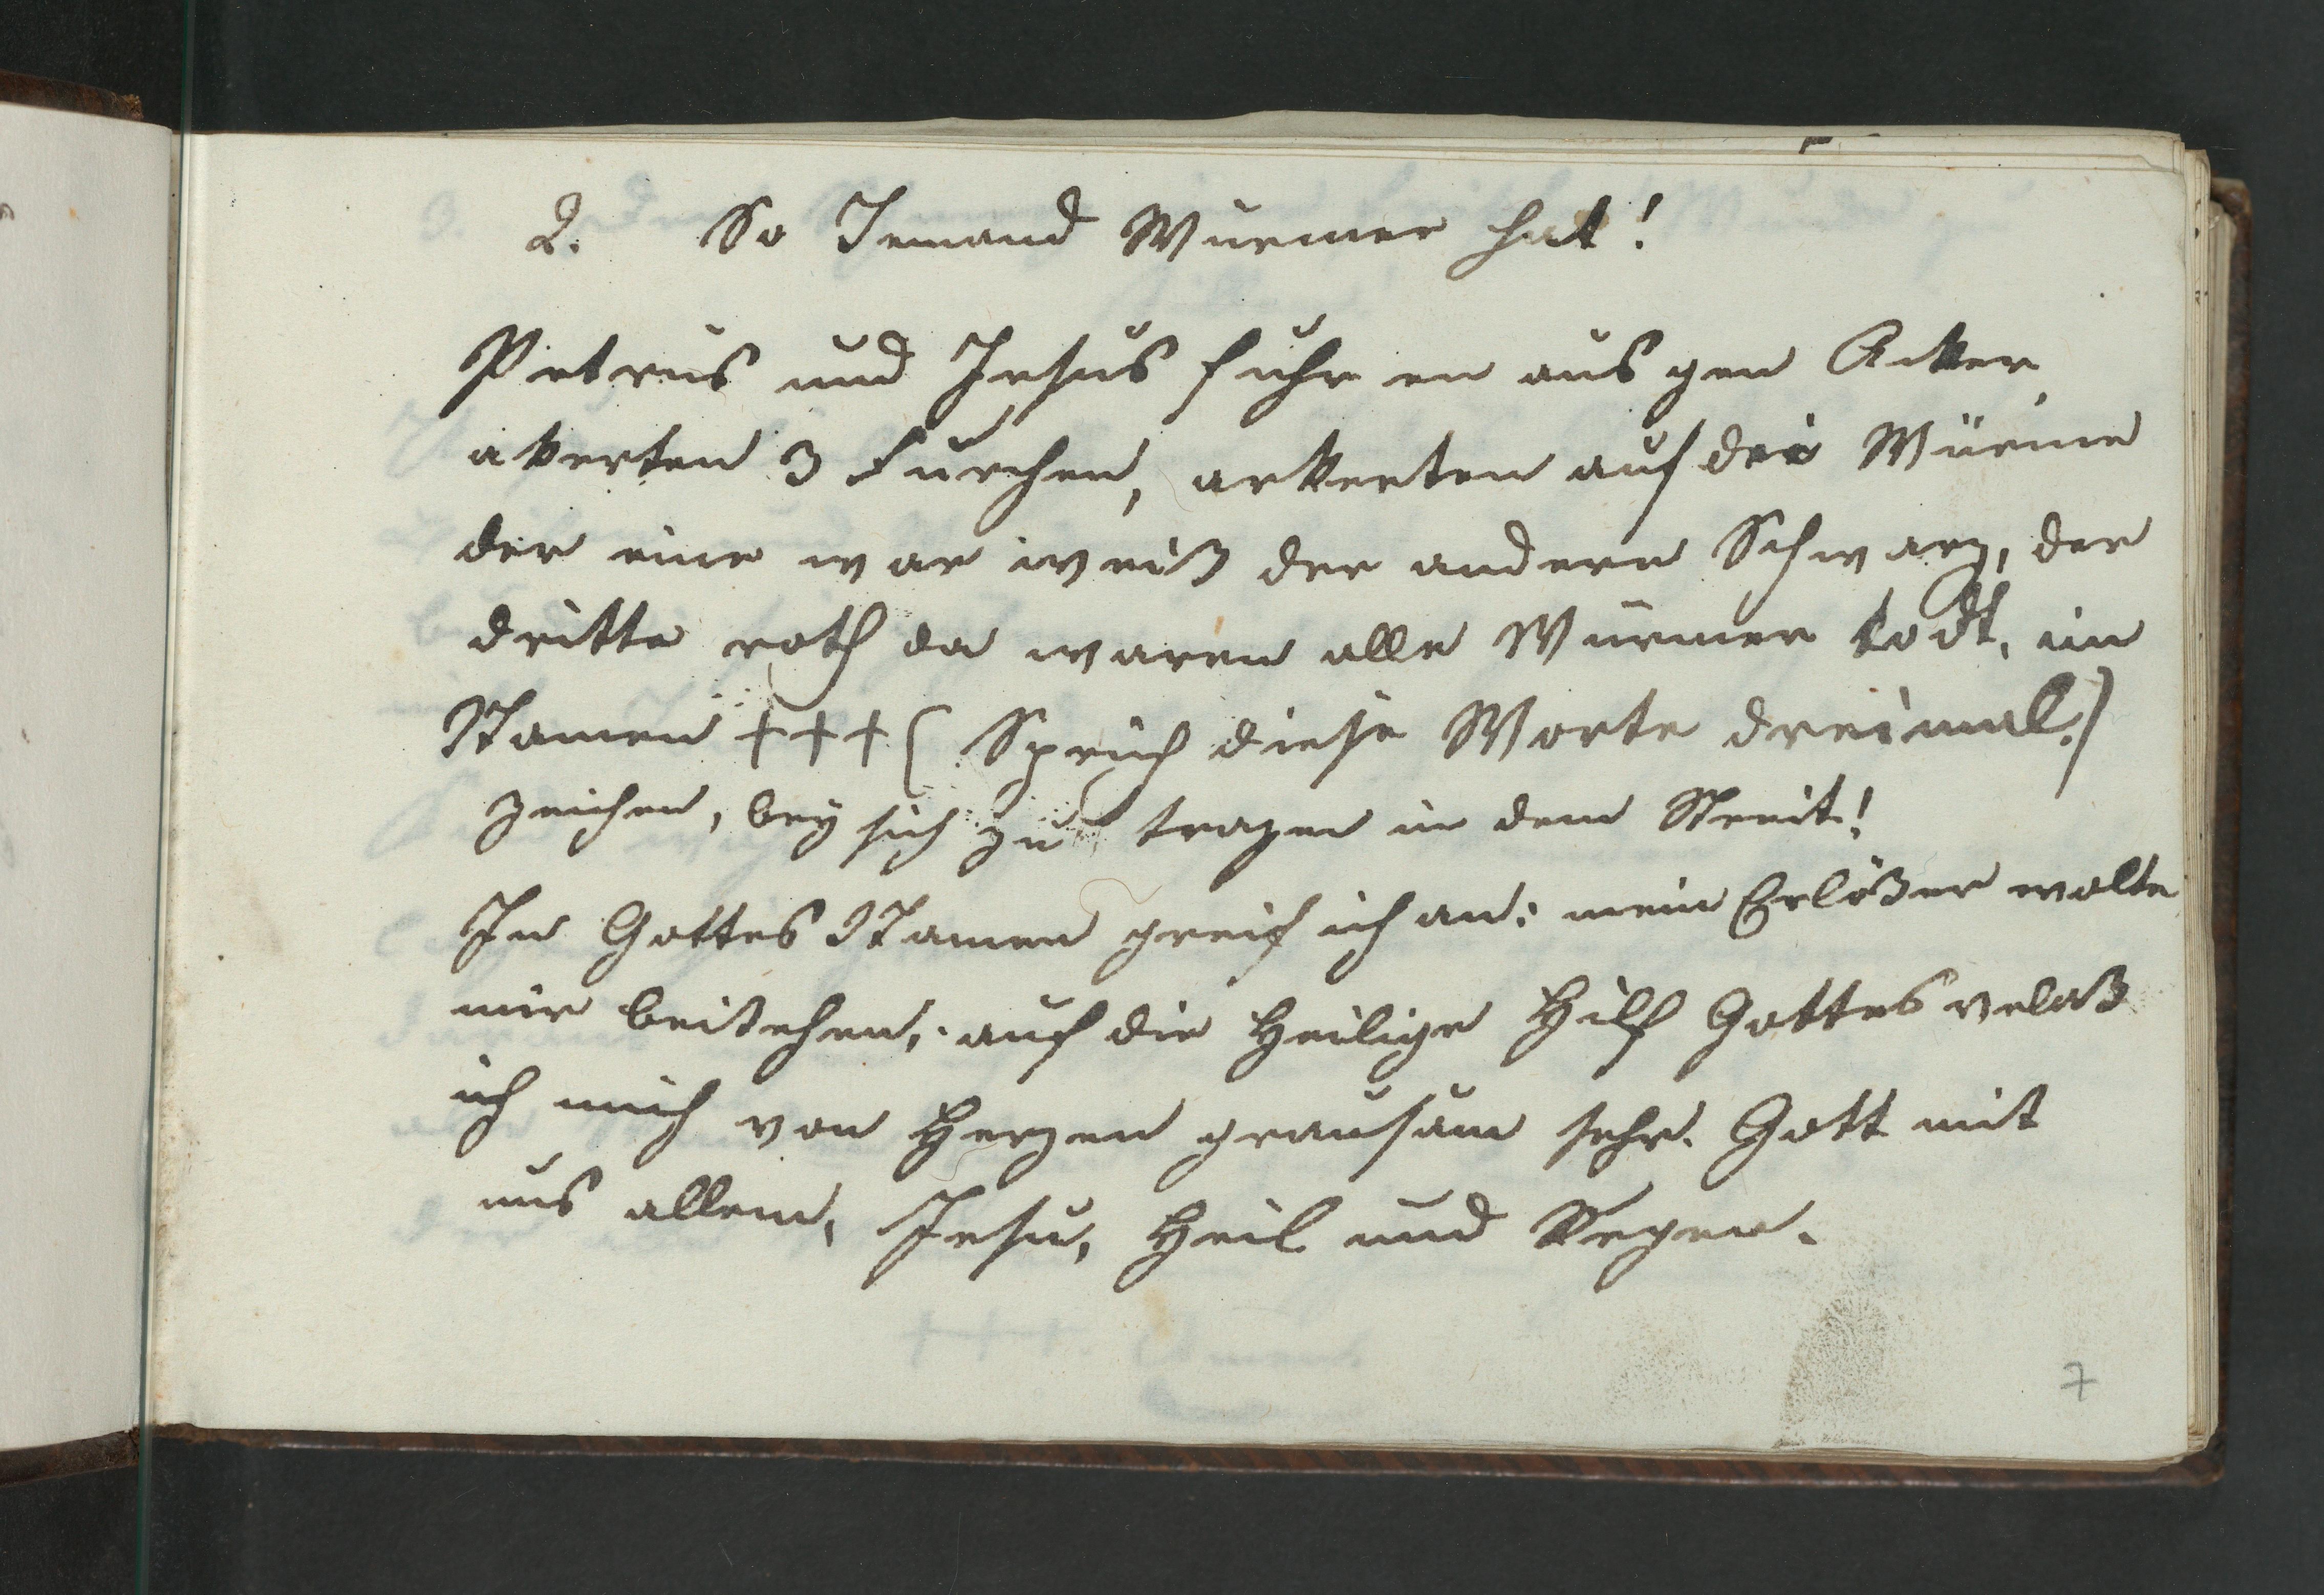 2. So Jemand Würmer hat!
Petrus und Jesus fuhren aus gen Acker
akerten 3 Furchen, arkerten auf drei Würme
der eine war weiß der andere Schwarz, der
dritte roth da waren alle Würmer todt, im
Namen +++ ( Sprich diese Worte dreimal.)
Zeichen, bey sich zu tragen in dem Streit!
In Gottes Namen greif ich an: mein Erlößer wolte
mir beistehen,: auf die Heilige Hilf Gottes velaß
ich mich von Herzen grausam sehr. Gott mit
uns allem, Jesu, Heil und Segen.
7